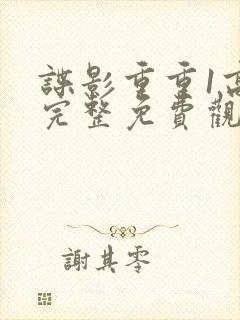 諜影重重1高
完整免費觀
謝其零